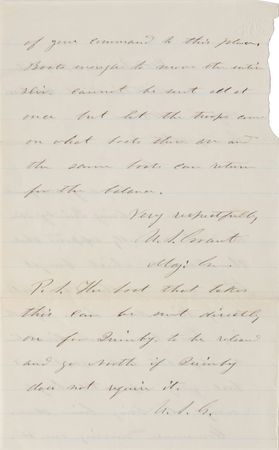 of your command to this place.
Boats enough to move the entire
Div. cannot be sent all at
once but let the troops come
on what boats there are and
the same boats can return
for the balance.
Very respectfully
U. S. Grant
Maj. Gen.
P. S. The boat that takes
this can be sent directly
on for Quinby, to be released
and go North if Quinby
does not require it.
U. S. G.